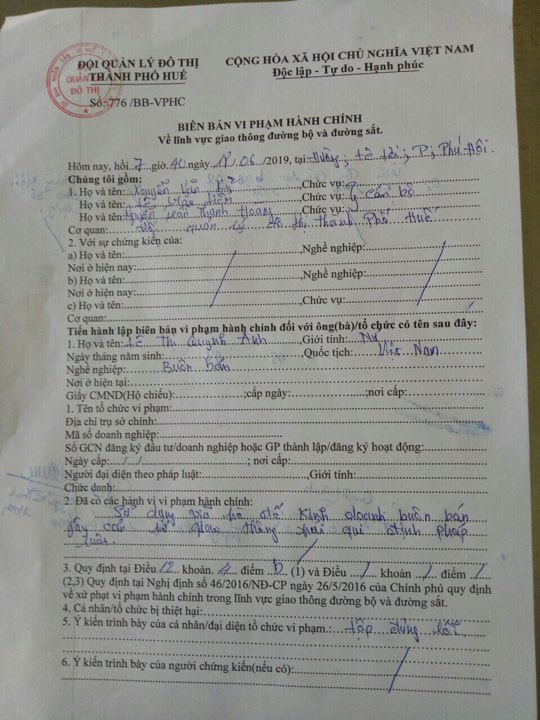 ĐỘI QUẢN LÝ ĐÔ THỊ
THÀNH PHỐ HUẾ
Số: 776 /BB-VPHC
CỘNG HÒA XÃ HỘI CHỦ NGHĨA VIỆT NAM
Độc lập - Tự do - Hạnh phúc
QUẢN
ĐÔ THỊ
BIÊN BẢN VI PHẠM HÀNH CHÍNH
Về lĩnh vực giao thông đường bộ và đường sắt.
Hôm nay, hồi 7 giờ 40 ngày 06 /2019, tại P. Phú Hội.
Chúng tôi gồm:
1. Họ và tên: Nguyễn Văn ,Chức vụ:
Họ và tên: ,Chức vụ: cán bộ
Họ và tên: Nguyễn Thanh Hoàng ,Chức vụ:
Cơ quan: Đội quản lý đô thị thành Phố Huế
2. Với sự chứng kiến của:
a) Họ và tên: ,Nghề nghiệp:
Nơi ở hiện nay:
b) Họ và tên: ,Nghề nghiệp:
Nơi ở hiện nay:
c) Họ và tên: ,Chức vụ:
Cơ quan:
Tiến hành lập biên bản vi phạm hành chính đối với ông(bà)/tổ chức có tên sau đây:
1. Họ và tên: Lê Thị Quỳnh Anh Giới tính: Nữ
Ngày tháng năm sinh: Quốc tịch: Việt Nam
Nghề nghiệp: Buôn bán
Nơi ở hiện tại:
Giấy CMND(Hộ chiếu): ;cấp ngày: ;nơi cấp:
1. Tên tổ chức vi phạm:
Địa chỉ trụ sở chính:
Mã số doanh nghiệp:
Số GCN đăng ký đầu tư/doanh nghiệp hoặc GP thành lập/đăng ký hoạt động:
Ngày cấp: / / ; nơi cấp:
Người đại diện theo pháp luật: ,Giới tính:
Chức danh:
2. Đã có các hành vi vi phạm hành chính:
Sử dụng vỉa hè để kinh doanh buôn bán
gây cản trở giao thông trái qui định pháp
luật.
3. Quy định tại Điều 12 khoản 4 điểm b (1) và Điều / khoản / điểm /
(2,3) Quy định tại Nghị định số 46/2016/NĐ-CP ngày 26/5/2016 của Chính phủ quy định
về xử phạt vi phạm hành chính trong lĩnh vực giao thông đường bộ và đường sắt.
4. Cá nhân/tổ chức bị thiệt hại:
5. Ý kiến trình bày của cá nhân/đại diện tổ chức vi phạm:
6. Ý kiến trình bày của người chứng kiến(nếu có):